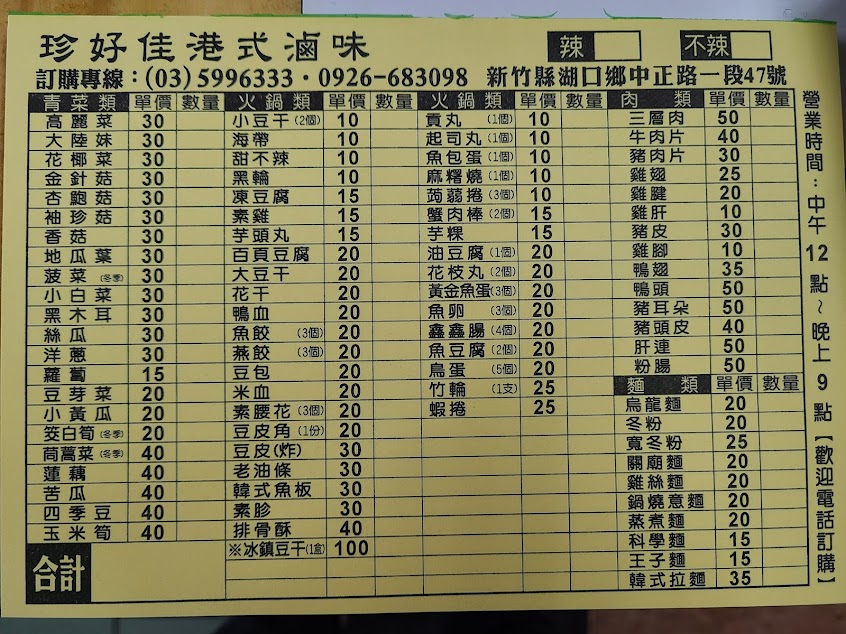 珍好佳港式滷味
辣
不辣
訂購專線：(03)5996333·0926-683098 新竹縣湖口鄉中正路一段47號
青菜類 單價 數量
高麗菜 30
大陸妹 30
花椰菜 30
金針菇 30
杏鮑菇 30
袖珍菇 30
香菇 30
地瓜葉 30
菠菜(冬季) 30
小白菜 30
黑木耳 30
絲瓜 30
洋蔥 30
蘿蔔 15
豆芽菜 20
小黃瓜 20
筊白筍(冬季) 20
茼萵菜(冬季) 40
蓮藕 40
苦瓜 40
四季豆 40
玉米筍 40
合計
火鍋類 單價 數量
小豆干(2個) 10
海帶 10
甜不辣 10
黑輪 10
凍豆腐 15
素雞 15
芋頭丸 15
百頁豆腐 20
大豆干 20
花干 20
鴨血 20
魚餃(3個) 20
燕餃(3個) 20
豆包 20
米血 20
素腰花(3個) 20
豆皮角(1份) 20
豆皮(炸) 30
老油條 30
韓式魚板 30
素胗 30
排骨酥 40
※冰鎮豆干(1盒) 100
火鍋類 單價 數量
貢丸(1個) 10
起司丸(1個) 10
魚包蛋(1個) 10
麻糬燒(1個) 10
蒟蒻捲(3個) 10
蟹肉棒(2個) 15
芋粿 15
油豆腐(1個) 20
花枝丸(2個) 20
黃金魚蛋(3個) 20
魚卵(3個) 20
鑫鑫腸(4個) 20
魚豆腐(2個) 20
鳥蛋(5個) 20
竹輪(1支) 25
蝦捲 25
肉類 單價 數量
三層肉 50
牛肉片 40
豬肉片 30
雞翅 25
雞腱 20
雞肝 10
豬皮 30
雞腳 10
鴨翅 35
鴨頭 50
豬耳朵 50
豬頭皮 40
肝連 50
粉腸 50
麵類 單價 數量
烏龍麵 20
冬粉 20
寬冬粉 25
關廟麵 20
雞絲麵 20
鍋燒意麵 20
蒸煮麵 20
科學麵 15
王子麵 15
韓式拉麵 35
營業時間：中午12點~晚上9點【歡迎電話訂購】